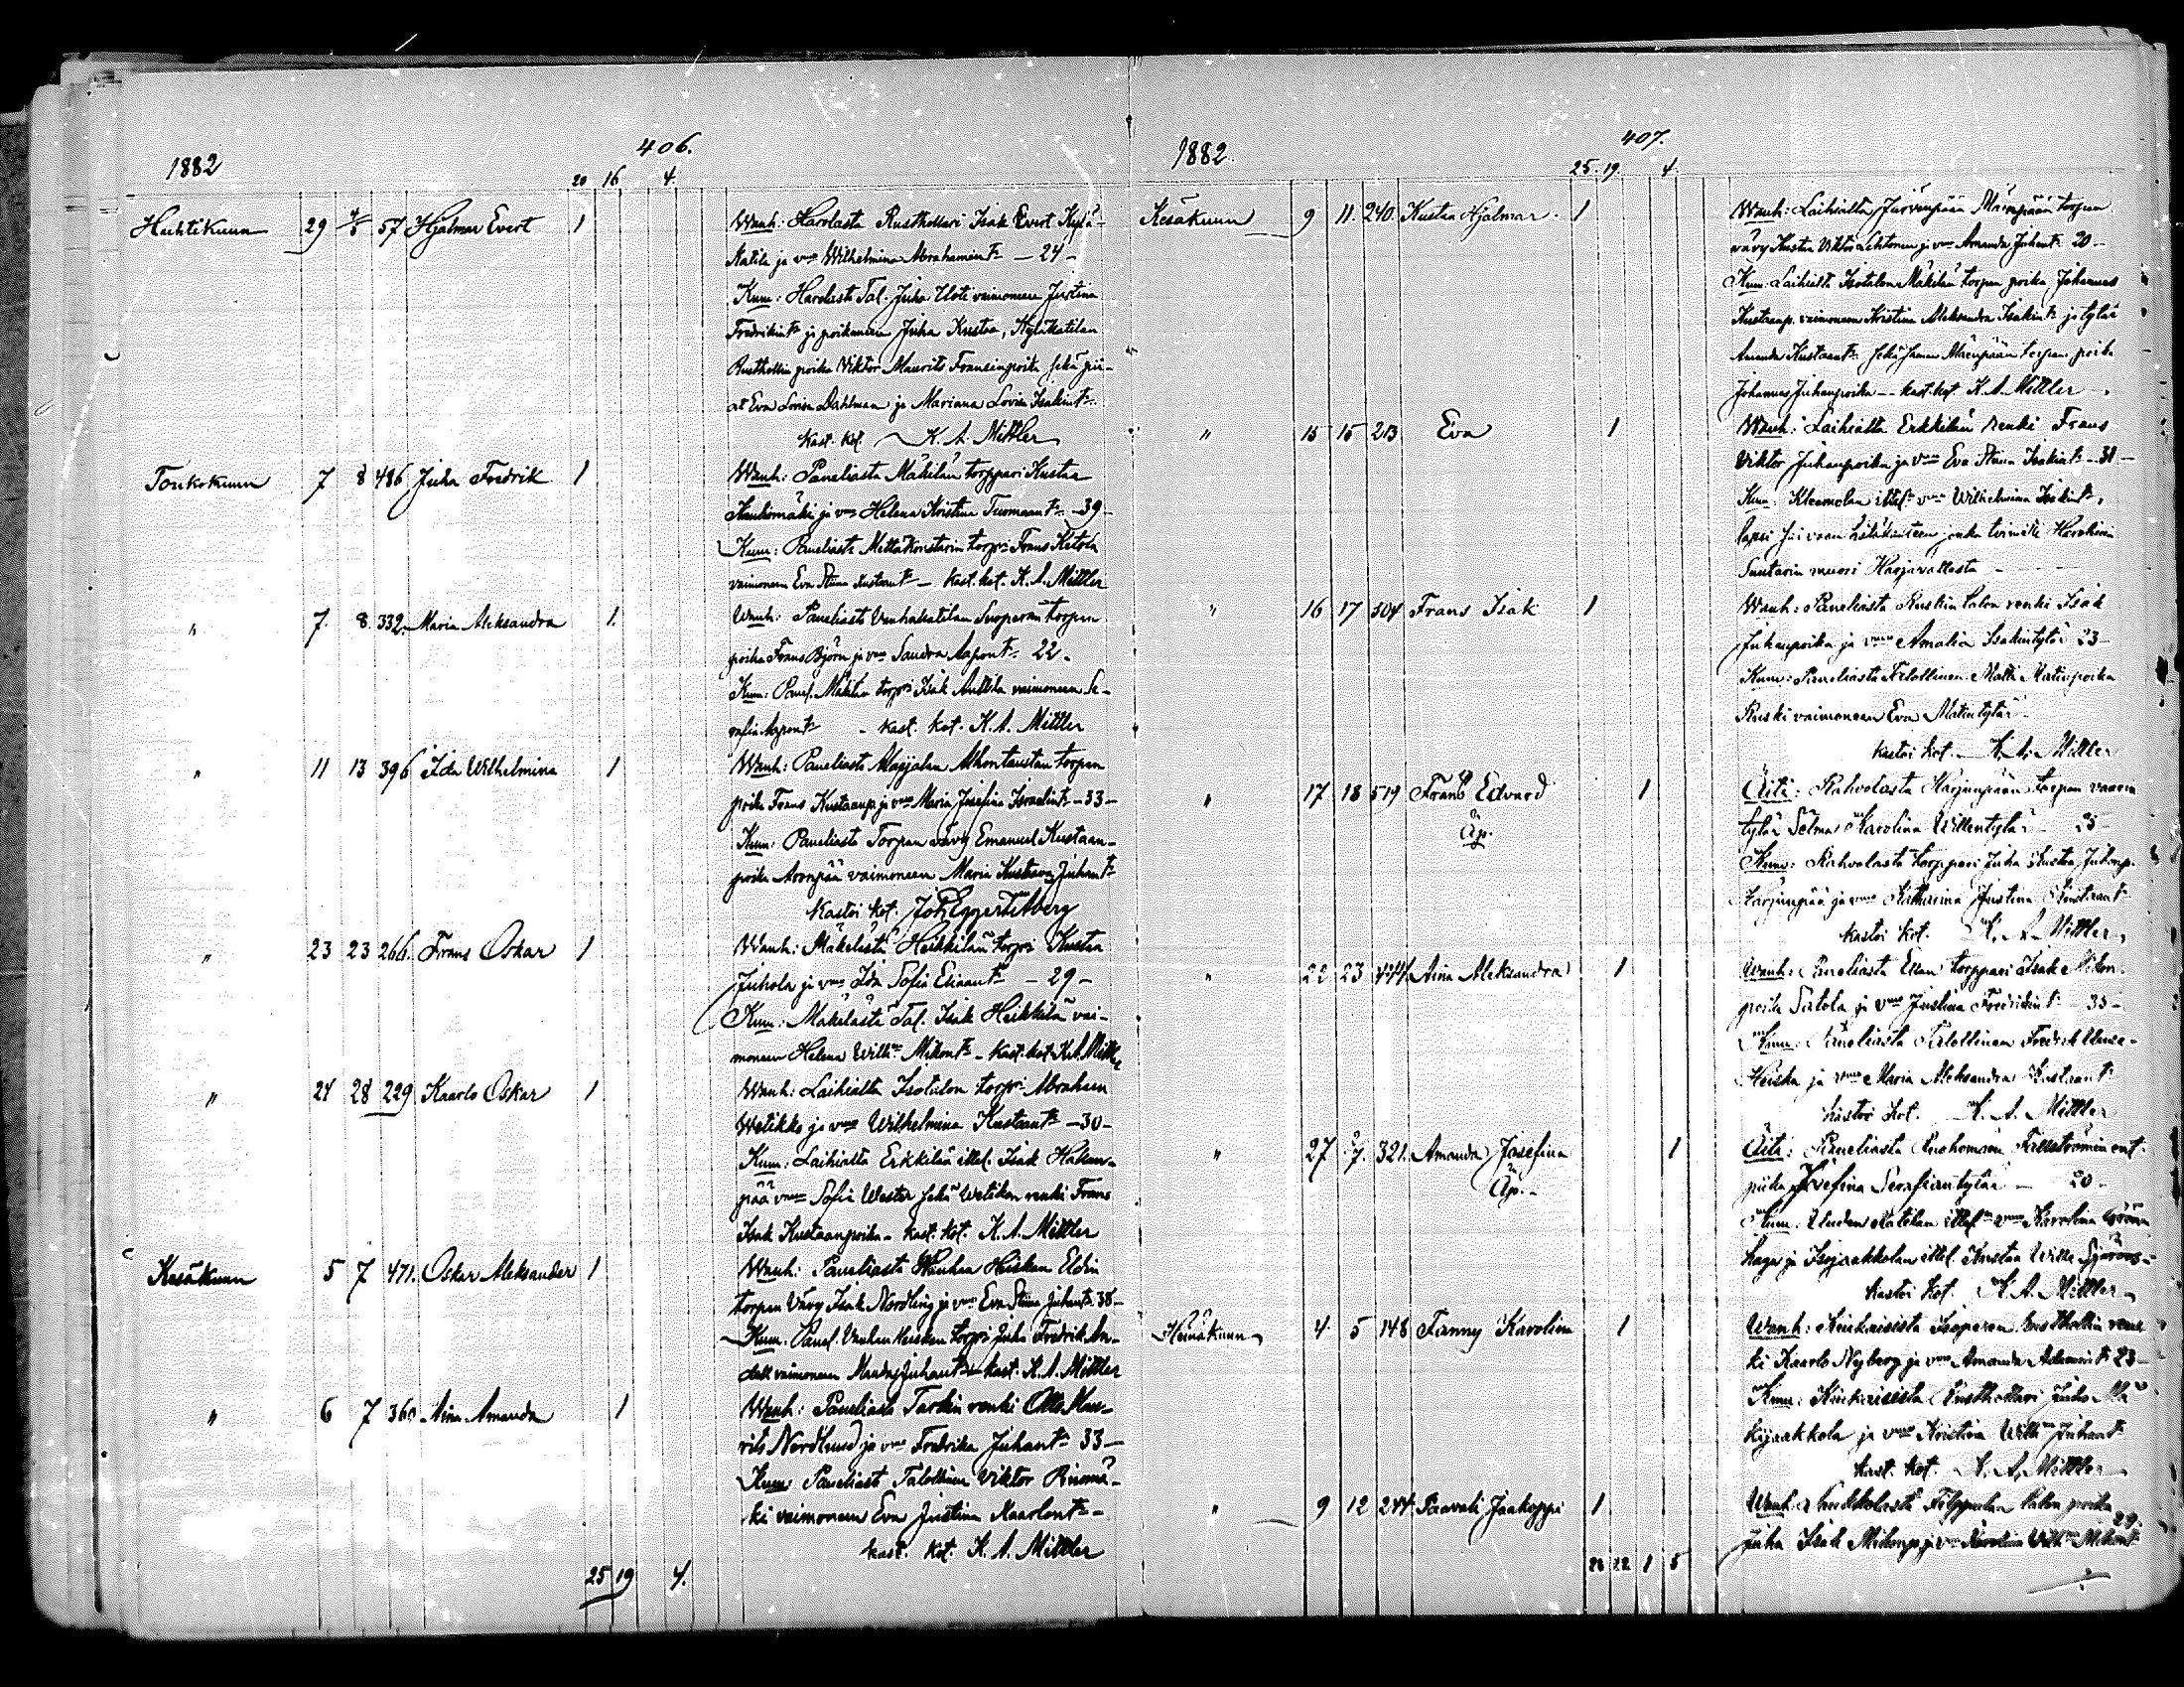 406.
1882
20 16 4.
Huhtikuun 29 4/5 57 Hjalmar Evert 1 Wanh: Harolasta Rusthollari Isak Evert Kylä-
Katila ja vmo Wilhelmina Abrahamint. - 24 -
Kum: Harolasta Tal. Juha Uoti vaimoneen Justina
Fredrikint. ja poikaneen Juha Kustaa, Kyläkatilan
Rusthollin poika Viktor Maurits Fransinpoika sekä pii-
at Eva Lovisa Dahlman ja Mariana Lovisa Isakint.
Kast. kot. K. A. Mittler
Toukokuun 7 8 486 Juha Fredrik 1 Wanh: Paneliasta Mäkelän torppari Kustaa
Kaukomäki ja vmo Helena Kristina Tuomaant. - 39 -
Kum: Paneliasta torpp. Frans Ketola
vaimoneen Eva Stiina Kustaant. - kast. kot. K. A. Mittler
" 7. 8. 332. Maria Aleksandra 1. Wanh: Paneliasta Vanhakatilan torpan
poika Frans Björn ja vmo Sandra Aapont. 22.
Kum: Panel. Mäkelän torpp. Isak Anttila vaimoneen Se-
rafia Aapont. - kast. kot. K. A. Mittler
" 11 13 396 Ida Wilhelmina 1 Wanh: Paneliasta Marjalan Ahontaustan torpan
poika Frans Kustaanp. ja vmo Maria Josefina Israelint. - 33 -
Kum: Paneliasta Torpan vävy Emanuel Kustaan-
poika Aronpää vaimoneen Maria Kustaava Juhant.
Kastoi kot. Joh. Eggert Åberg
" 23 23 266. Frans Oskar 1 Wanh: Mäkelästä Heikkilän torpp. Kustaa
Juhola ja vmo Ida Sofia Eliaant. - 29 -
Kum: Mäkelästä Tal. Isak Heikkilä vai-
moneen Helena Wilh. Mikont. - Kast. kot. K. A. Mittler
" 24 28 229 Kaarlo Oskar 1 Wanh: Laihialta Isotalon torpp. Abraham
Wetikko ja vmo Wilhelmina Kustaant. - 30 -
Kum: Laihialta Erkkilän ittel. Isak Hakan-
pää vmo Sofia Wester sekä Wetikon renki Frans
Isak Kustaanpoika - kast. kot. K. A. Mittler
Kesäkuun 5 7 471. Oskar Aleksander 1 Wanh: Paneliasta Wanhan Heiskan Eldin
torpan vävy Isak Nordling ja vmo Eva Stiina Juhant. 38 -
Kum: Panel. Vanhan Heiskan torpp. Juha Fredrik
vaimoneen Juhant. - kast. K. A. Mittler
" 6 7 360 Aina Amanda 1 Wanh: Paneliasta Tarkin renki Otto Mau-
rits Nordlund ja vmo Fredrika Juhant. 33 -
Kum: Paneliasta Talollinen Viktor Rinmä-
ki vaimoneen Eva Justina Kaarlont. -
kast. kot. K. A. Mittler
25 19 4.
407.
1882.
25. 19. 4.
Kesäkuun 9 11. 240. Kustaa Hjalmar. 1 Wanh: Laihialta Järvenpään Mäenpään torpan
vävy Kustaa Viktor Lehtonen ja vmo Amanda Juhant. 20 -
Kum: Laihialta Isotalon Mäkelän torpan poika Johannes
Kustaanp. vaimoneen Kristina Aleksandra Isakint. ja tytär
Amanda Kustaant. sekä saman Mäenpään torpan poika
Johannes Juhanpoika - kast. kot. K. A. Mittler
" 15 15 213 Eva 1 Wanh: Laihialta Erkkilän renki Frans
Viktor Juhanpoika ja vmo Eva Stiina Isakint. - 31 -
Kum: Kleemolan ittel. vmo Wilhelmina Isakint.,
lapsi sai vaan hätäkasteen jonka toimitti
muori Harjavallasta -
" 16 17 504 Frans Isak 1 Wanh: Paneliasta Ruskin talon renki Isak
Juhanpoika ja vmo Amalia Isakintytär 23 -
Kum: Paneliasta Talollinen Matti Matinpoika
Ruski vaimoneen Eva Matintytär -
kastoi kot. K. A. Mittler
" 17 18 519 Frans Edvard 1 Äiti: Rahvolasta Harjunpään torpan vaarin
Äp. tytär Selma Karolina Willentytär - 25 -
Kum: Rahvolasta torppari Juha Kustaa Juhanp.
Harjunpää ja vmo Katharina Justina Kustaant.
kastoi kot. K. A. Mittler
" 22 23 444. Aina Aleksandra 1 Wanh: Paneliasta torppari Isak Mikon-
poika ja vmo Justina Fredrikint. - 35 -
Kum: Paneliasta Talollinen Fredrik
Heiska ja vmo Maria Aleksandra Kustaant.
kastoi kot. K. A. Mittler
" 27 2/7. 321. Amanda Josefina 1 Äiti: Paneliasta
Äp. piika Josefina Serafiantytär - 20 -
Kum: Uuden Katilan ittel. vmo Karolina
ja Isojaakkolan ittel. Kustaa Wille
kastoi kot. K. A. Mittler
Heinäkuun 4 5 148 Fanny Karolina 1 Wanh: Kiukaisista Isoperen Rusthollin ren-
ki Kaarlo Nyberg ja vmo Amanda Adamint. 23 -
Kum: Kiukaisista Rusthollari Juho Mä-
kijaakkola ja vmo Kristina Wilh. Juhant.
kast. kot. K. A. Mittler
" 9 12 244. Paavali Jaakoppi 1 Wanh: Filppulan talon poika
Juha Isak Mikonp. ja vmo Karolina Wilh. Mikont. 29.
22 1 5